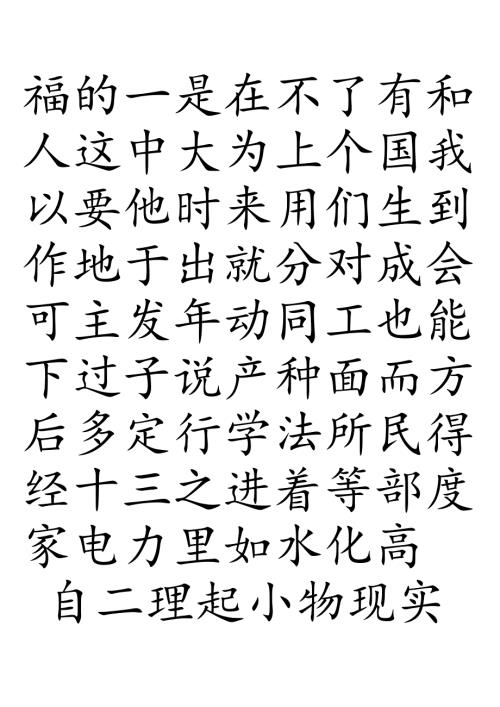 福的一是在不了有和
人这中大为上个国我
以要他时来用们生到
作地于出就分对成会
可主发年动同工也能
下过子说产种面而方
后多定行学法所民得
经十三之进着等部度
家电力里如水化高
自二理起小物现实